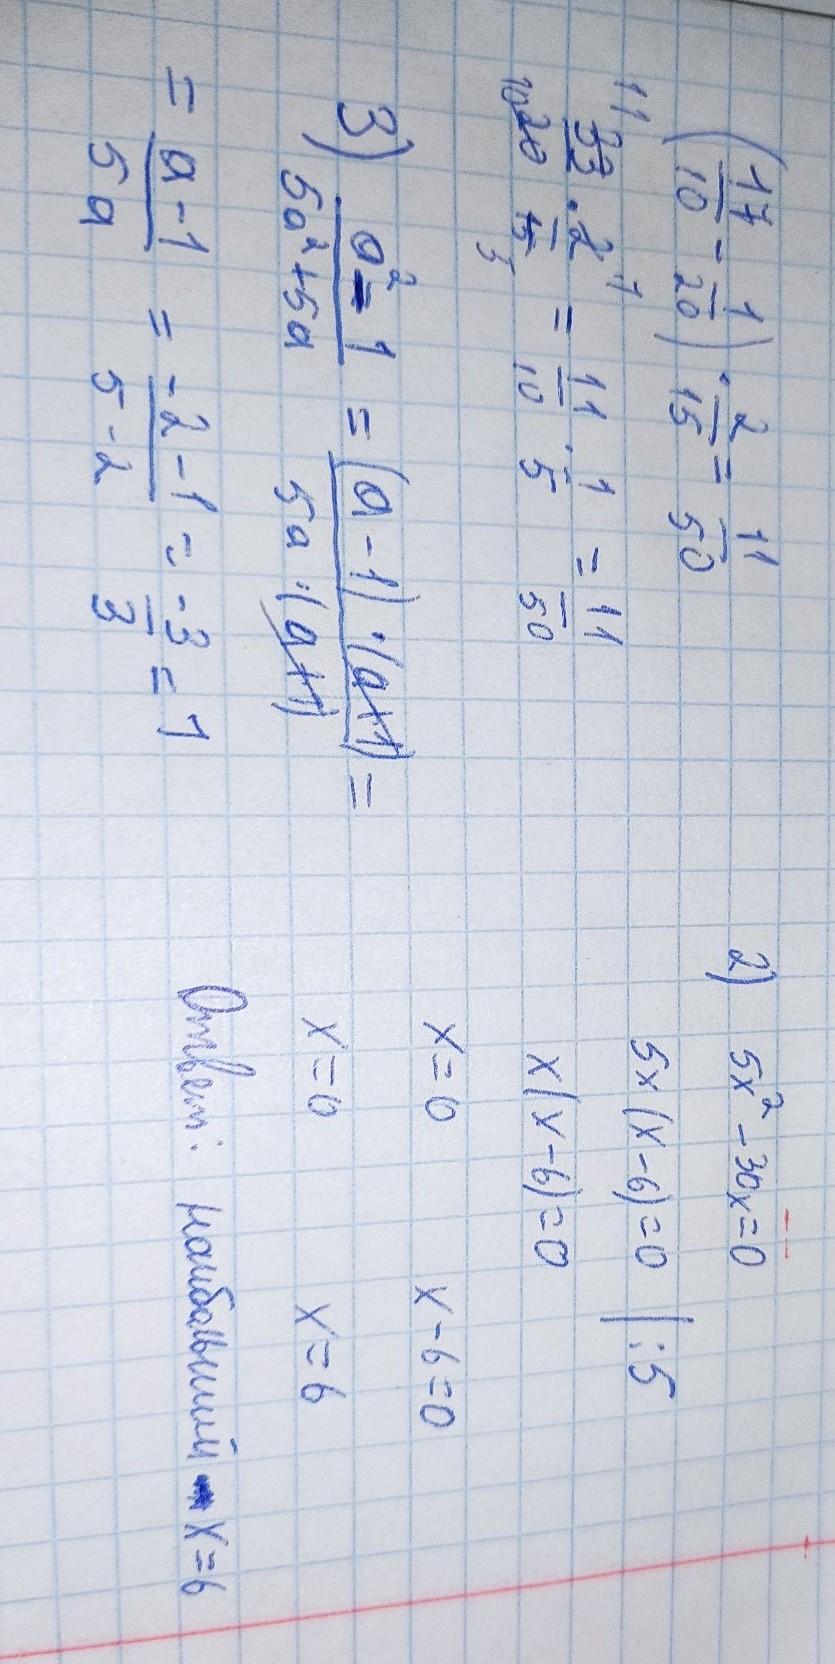 (17/10 - 1/20) · 2/15 = 11/50
11 33/20 10 · 2 1/15 5 = 11/10 · 1/5 = 11/50
3) a² - 1/5a² + 5a = (a - 1) · (a + 1)/5a · (a + 1) =
= a - 1/5a = -2 - 1/5 - 2 = -3/3 = 1
2) 5x² - 30x = 0
5x (x - 6) = 0 | : 5
x (x - 6) = 0
x = 0 x - 6 = 0
x = 0 x = 6
Ответ: наибольший x = 6